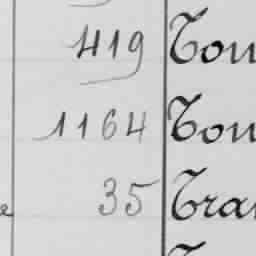 419 Tou
1164 Tou
35 Tra